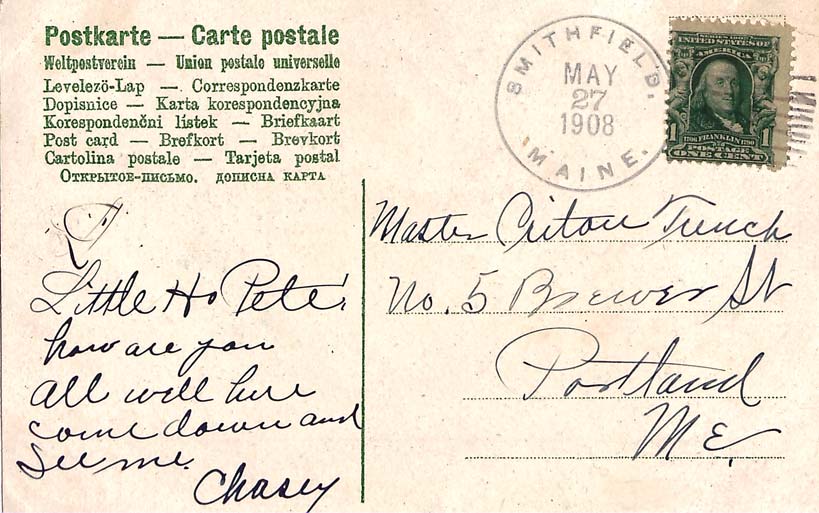 Postkarte — Carte postale
Weltpostverein — Union postale universelle
Levelező-Lap — Correspondenzkarte
Dopisnice — Karta korespondencyjna
Korespondenční listek — Briefkaart
Post card — Brefkort — Brevkort
Cartolina postale — Tarjeta postal
Открытое-письмо. дописна карта
SMITHFIELD,
MAY
27
1908
MAINE.
UNITED STATES OF
AMERICA
1706 FRANKLIN 1790
1 1
POSTAGE
ONE CENT
Little Ho Pete!
how are you
all well here
come down and
see me.
Chasey
Master
No. 5 Brewer St
Portland
Me.